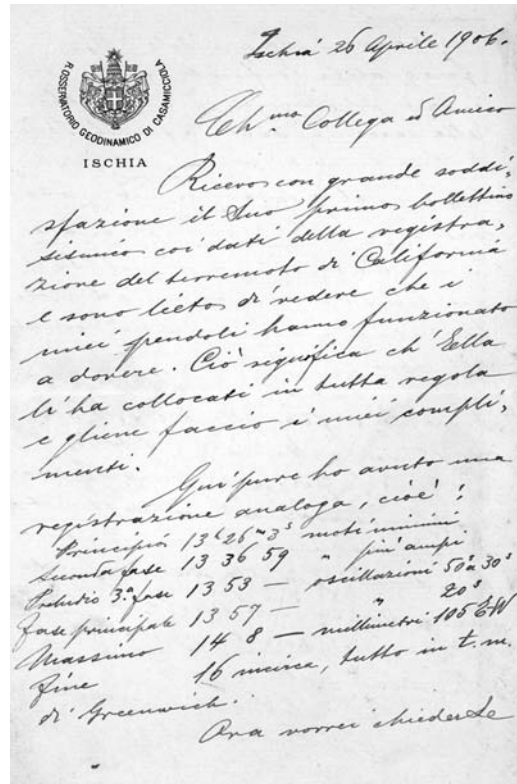 R. OSSERVATORIO GEODINAMICO DI CASAMICCIOLA
ISCHIA
Ischia 26 Aprile 1906.
Ch.mo Collega ed Amico
Ricevo con grande soddi,
sfazione il Suo primo bollettino
sismico coi dati della registra,
zione del terremoto di California
e sono lieto di vedere che i
miei pendoli hanno funzionato
a dovere. Ciò significa ch'Ella
li ha collocati in tutta regola
e gliene faccio i miei compli,
menti.
Qui pure ho avuto una
registrazione analoga, cioè:
Principio 13h 26m 3s moti minimi
Seconda fase 13 36 59 " più ampi
Preludio 3ª fase 13 53 — oscillazioni 50 a 30s
Fase principale 13 57 — " 20s
Massimo 14 8 — millimetri 105
Fine 16 incirca, tutto in t. m.
di Greenwich.
Ora vorrei chiederLe